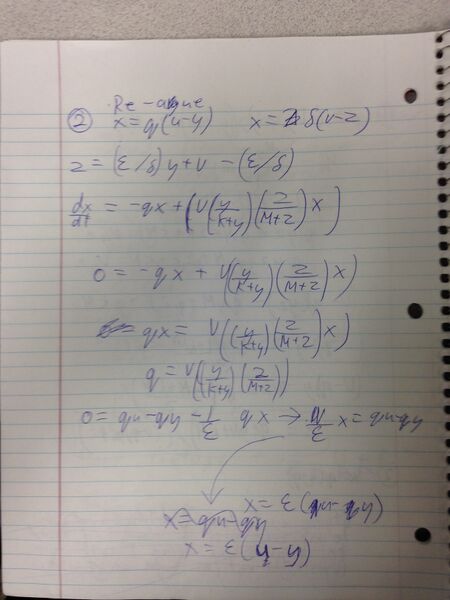 Re-argue
② x=q(u-y) x=δ(v-z)
z = (ε/δ)y+v-(ε/δ)
dx/dt = -qx + (V(y/(K+y))(z/(M+z))x)
0 = -qx + V((y/(K+y))(z/(M+z))x)
qx = V((y/(K+y))(z/(M+z))x)
q = V((y/(K+y))(z/(M+z)))
0 = qu-qy-1/ε qx → 1/ε x = qu-qy
x = ε(qu-qy)
x=qu-qy
x = ε(u-y)